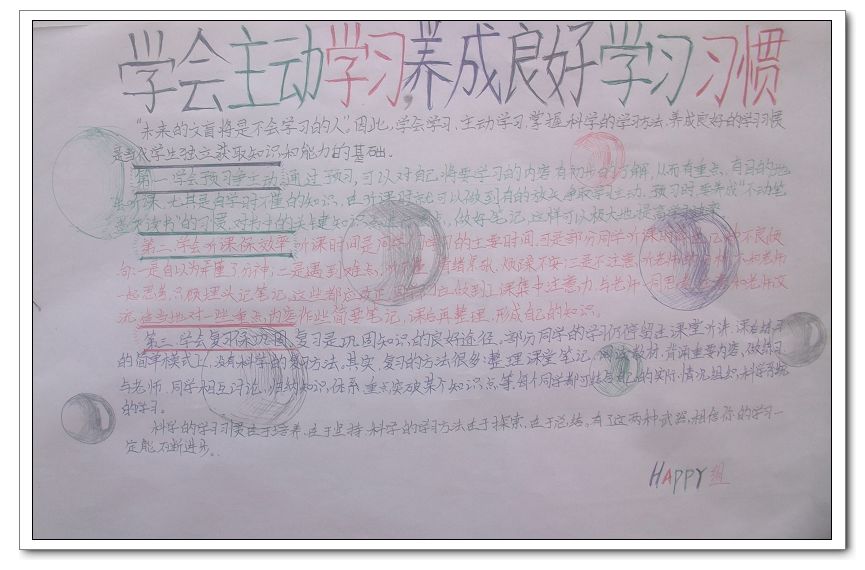 学会主动学习养成良好学习习惯
"未来的文盲将是不会学习的人"。因此,学会学习、主动学习、掌握科学的学习方法、养成良好的学习习惯
是当代学生独立获取知识和能力的基础。
第一、学会预习争主动。通过预习,可以对自己将要学习的内容有初步的了解,从而有重点、有目的地
去听课,尤其是自学时不懂的知识,在听课时就可以做到有的放矢,争取学习主动。预习时,要养成"不动笔
墨不读书"的习惯,对书中的关键知识,做好笔记,这样可以极大地提高学习效率
第二、学会听课保效率。听课时间是同学们学习的主要时间,可是部分同学听课时
向:一是自以为弄懂了分神;二是遇到难点,烦躁不安;三是不注意听老师
一起思考,只顾埋头记笔记,这些都应改正。做到上课集中注意力,与老师一同思考和老师交
流,适当地对一些重点内容作些简要笔记,课后再整理,形成自己的知识。
第三、学会复习保巩固。复习是巩固知识的良好途径。部分同学的学习仍停留在课堂听讲,课后练习
的简单模式上,没有科学的复习方法。其实,复习的方法很多:整理课堂笔记、阅读教材、背诵重要内容、做练习
与老师、同学相互讨论、归纳知识体系、重点突破某个知识点等,每个同学都可结合自己的实际情况组织,科学系统
的学习。
科学的学习习惯在于培养、在于坚持,科学的学习方法在于探索、在于总结。有了这两种武器,相信你的学习一
定能不断进步。
HAPPY组